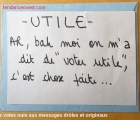 tendanceouest.com
-UTILE-
Ah, bah moi on m'a
dit de "voter utile",
c'est chose faite...
s votes nuls aux messages drôles et originaux